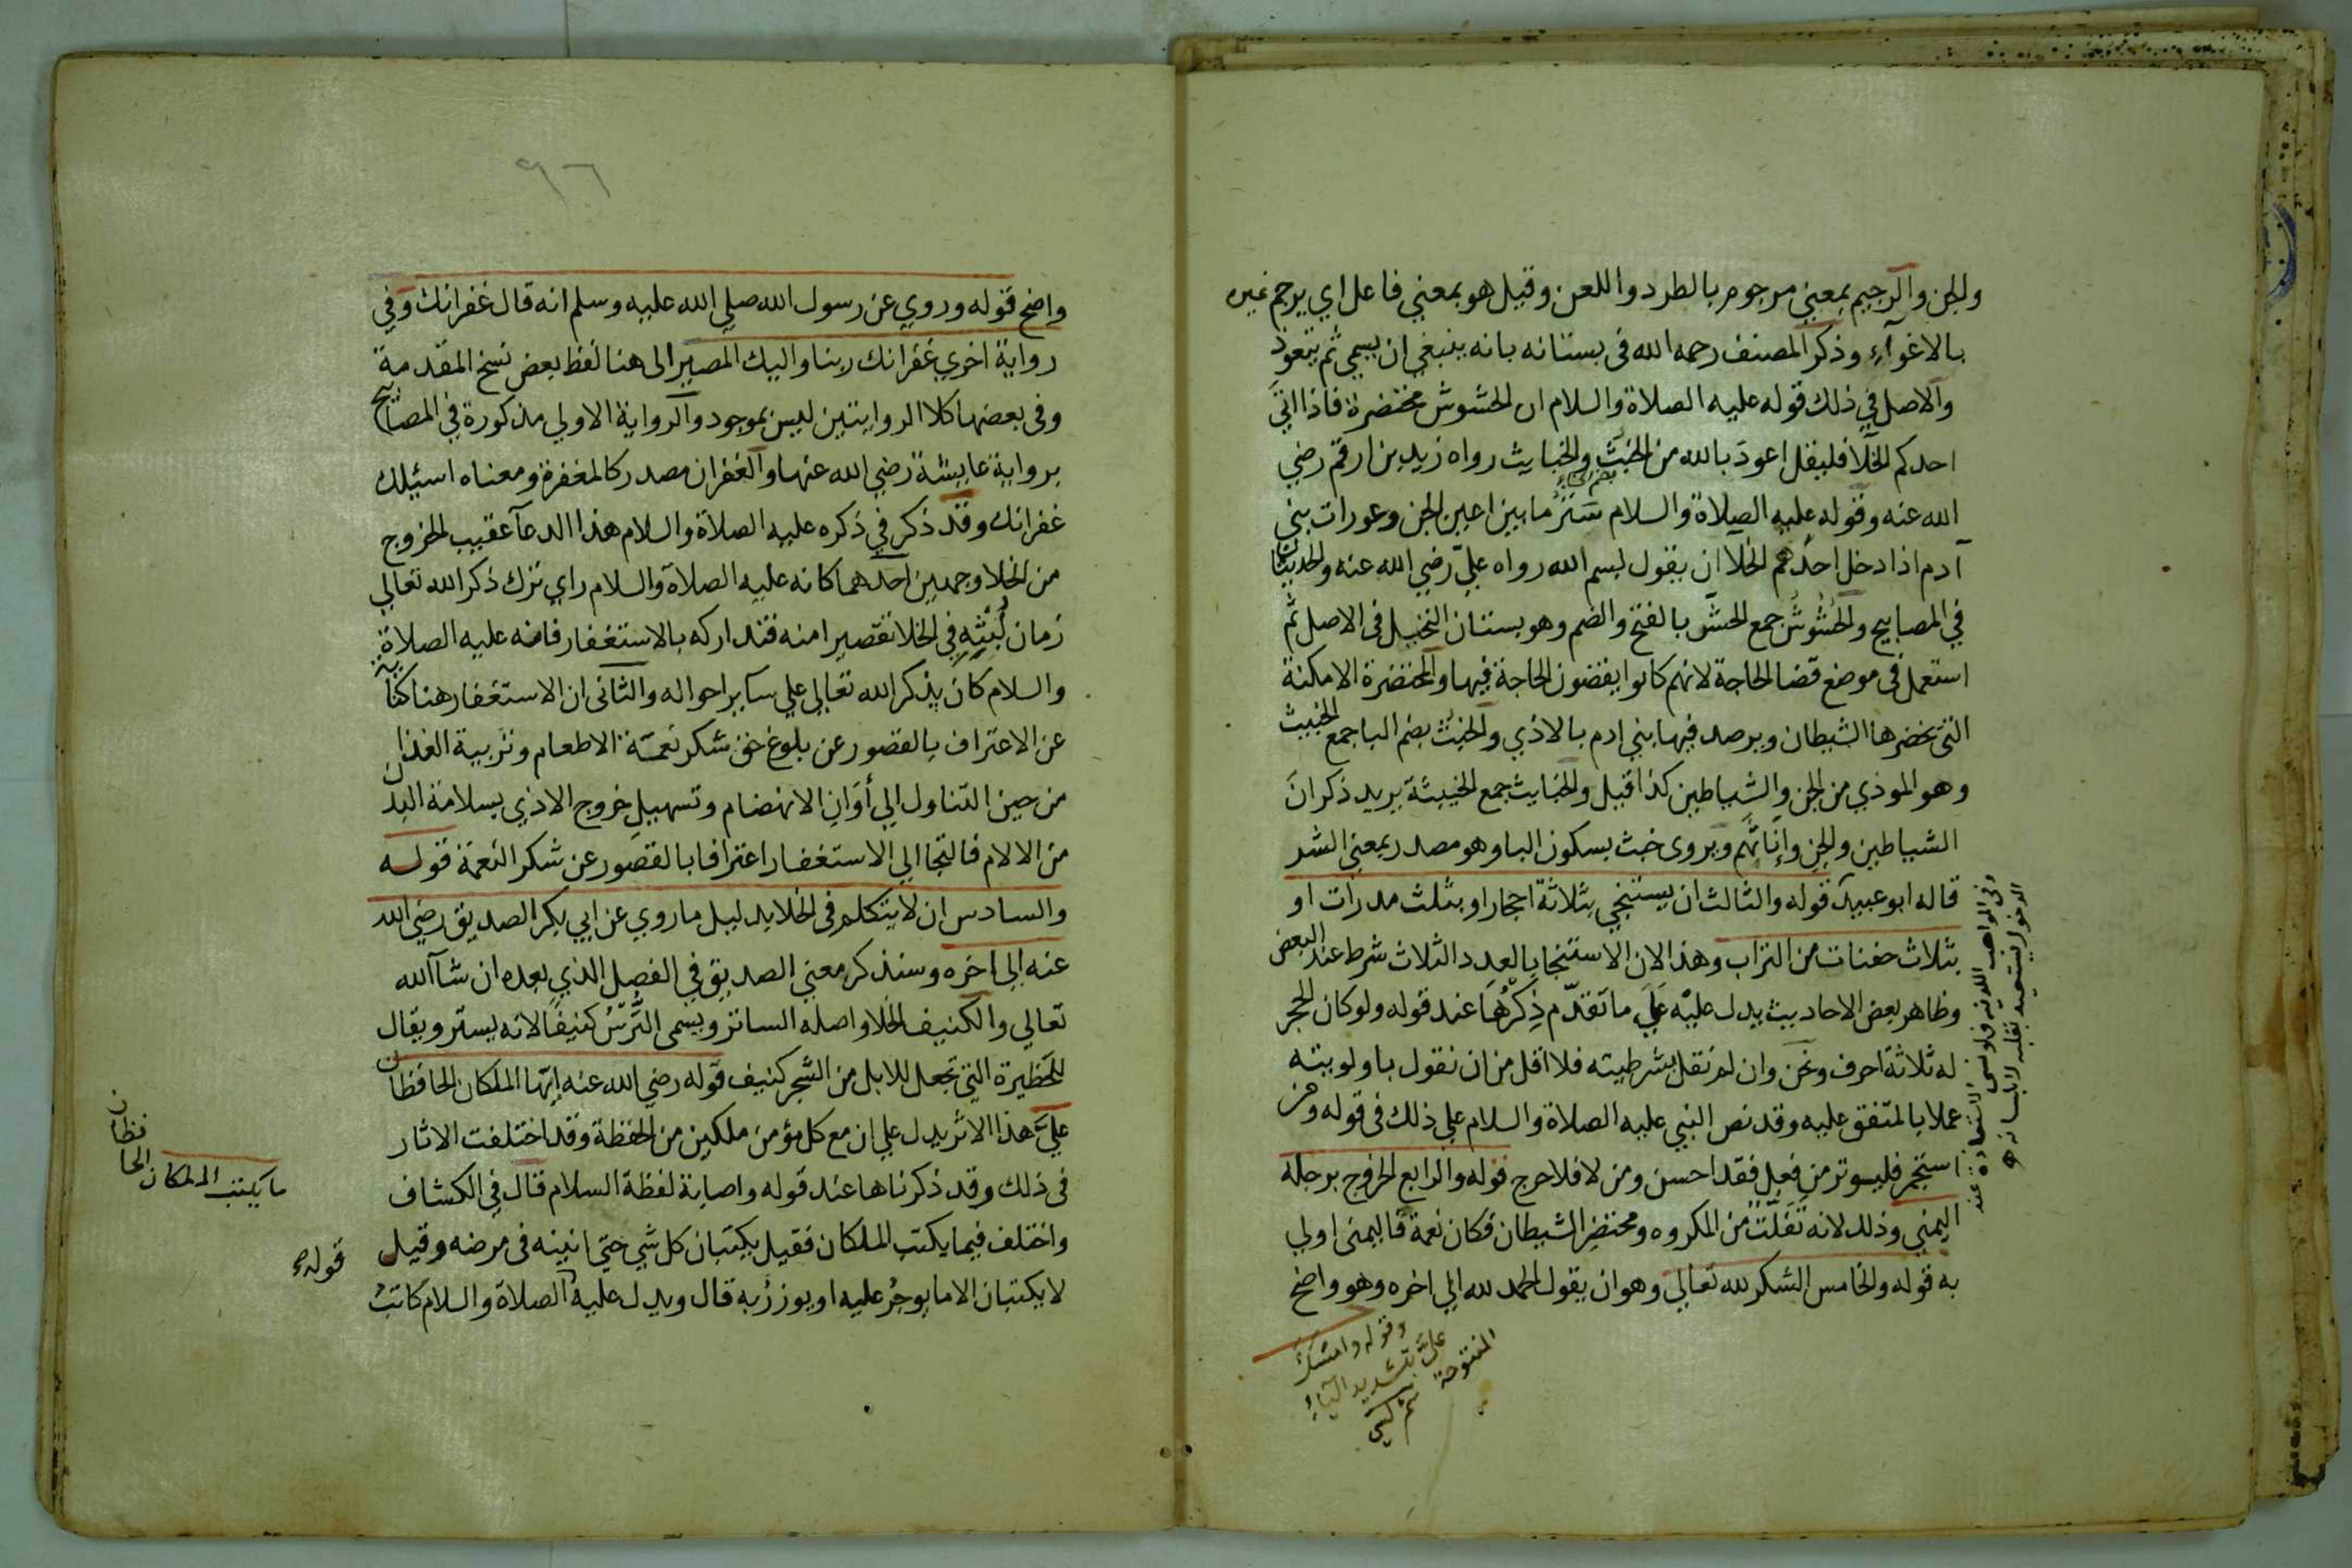 والجن والرجيم بمعني مرجوم بالطرد واللعن وقيل هو بمعني فاعل اي يرجم غيره
بالاغوآء وذكر المصنف رحمه الله فى بستانه بانه ينبغي ان يسمي ثم يتعوذ
والاصل في ذلك قوله عليه الصلاة والسلام ان الحشوش محتضرة فاذا اتي
احدكم الخلا فليقل اعوذ بالله من الخبث والخبايث رواه زيد بن ارقم رضي
الله عنه وقوله عليه الصلاة والسلام ستر ما بين اعين الجن وعورات بني
آدم اذا دخل احدهم الخلا ان يقول بسم الله رواه علي رضي الله عنه والحديثان
في المصابيح والحُشُوشُ جمع الحش بالفتح والضم وهو بستان النخيل فى الاصل ثم
استعمل فى موضع قضا الحاجة لانهم كانوا يقضون الحاجة فيها والمحتضرة الامكنة
التى يحضرها الشيطان ويرصد فيها بني ادم بالاذي والخبث بضم البا جمع الخبيث
وهو الموذي من الجن والشياطين كذا قيل والخبايث جمع الخبيثة يريد ذكران
الشياطين والجن وإناثهم ويروى خبث بسكون البا وهو مصدر بمعني الشر
قاله ابو عبيد قوله والثالث ان يستنجي بثلاثة احجار او بثلث مدرات او
بثلاث حفنات من التراب وهذا لان الاستنجا بالعدد الثلاث شرط عند البعض
وظاهر بعض الاحاديث يدل عليه عَلَي ما تقدّم ذِكْرُهَا عند قوله ولو كان الحجر
له ثلاثة احرف ونحن وان لم نقل بشرطيته فلا اقل من ان نقول باولويته
عملا بالمتفق عليه وقد نص النبي عليه الصلاة والسلام علي ذلك فى قوله ومن
استجمر فليوتر من فعل فقد احسن ومن لا فلا حرج قوله والرابع الخروج برجله
اليمني وذلك لانه تَفَلُّتٌ من المكروه ومحتضر الشيطان فكان نعمة فاليمنى اولي
به قوله والخامس الشكر لله تعالي وهو ان يقول الحمد لله الي اخره وهو واضح
وقوله وامسك
علىّ بتشديد الياء
المفتوحة
واضح قوله وروي عن رسول الله صلي الله عليه وسلم انه قال غفرانك وفي
رواية اخري غفرانك ربنا واليك المصير الى هنا لفظ بعض نسخ المقدمة
وفى بعضها كلا الروايتين ليس بموجود والرواية الاولي مذكورة في المصابيح
برواية عايشة رضي الله عنها والغفران مصدر كالمغفرة ومعناه اسئلك
غفرانك وقد ذكر في ذكره عليه الصلاة والسلام هذا الدعآ عقيب الخروج
من الخلا وجهين احدهما كانه عليه الصلاة والسلام راي ترك ذكر الله تعالي
زمان لُبْثِهِ في الخلا تقصيرا منه فتداركه بالاستغفار فانه عليه الصلاة
والسلام كان يذكر الله تعالي علي ساير احواله والثانى ان الاستغفار هنا كناية
عن الاعتراف بالقصور عن بلوغ حق شكر نعمة الاطعام وتربية الغذا
من حين التناول الي أَوَانِ الانهضام وتسهيل خروج الاذي بسلامة البدن
من الالام فالتجا الي الاستغفار اعترافا بالقصور عن شكر النعمة قوله
والسادس ان لا يتكلم فى الخلا بدليل ما روي عن ابي بكر الصديق رضي الله
عنه الي اخره وسنذكر معني الصديق في الفصل الذي بعده ان شآ الله
تعالي والكنيف الخلا واصله الساتر ويسمى التُّرْسُ كنيفًا لانه يستر ويقال
للحظيرة التي تجعل للابل من الشجر كنيف قوله رضي الله عنه ايّها الملكان الحافظان
عليّ هذا الاثر يدل علي ان مع كل مؤمن ملكين من الحفظة وقد اختلفت الاثار
فى ذلك وقد ذكرناها عند قوله واصابة لفظة السلام قال في الكشاف
واختلف فيما يكتب الملكان فقيل يكتبان كل شي حتي انينه فى مرضه وقيل
لا يكتبان الا ما يوجر عليه او يوزر به قال ويدل عليه الصلاة والسلام كاتب
ما يكتب الملكان الحافظان
قوله